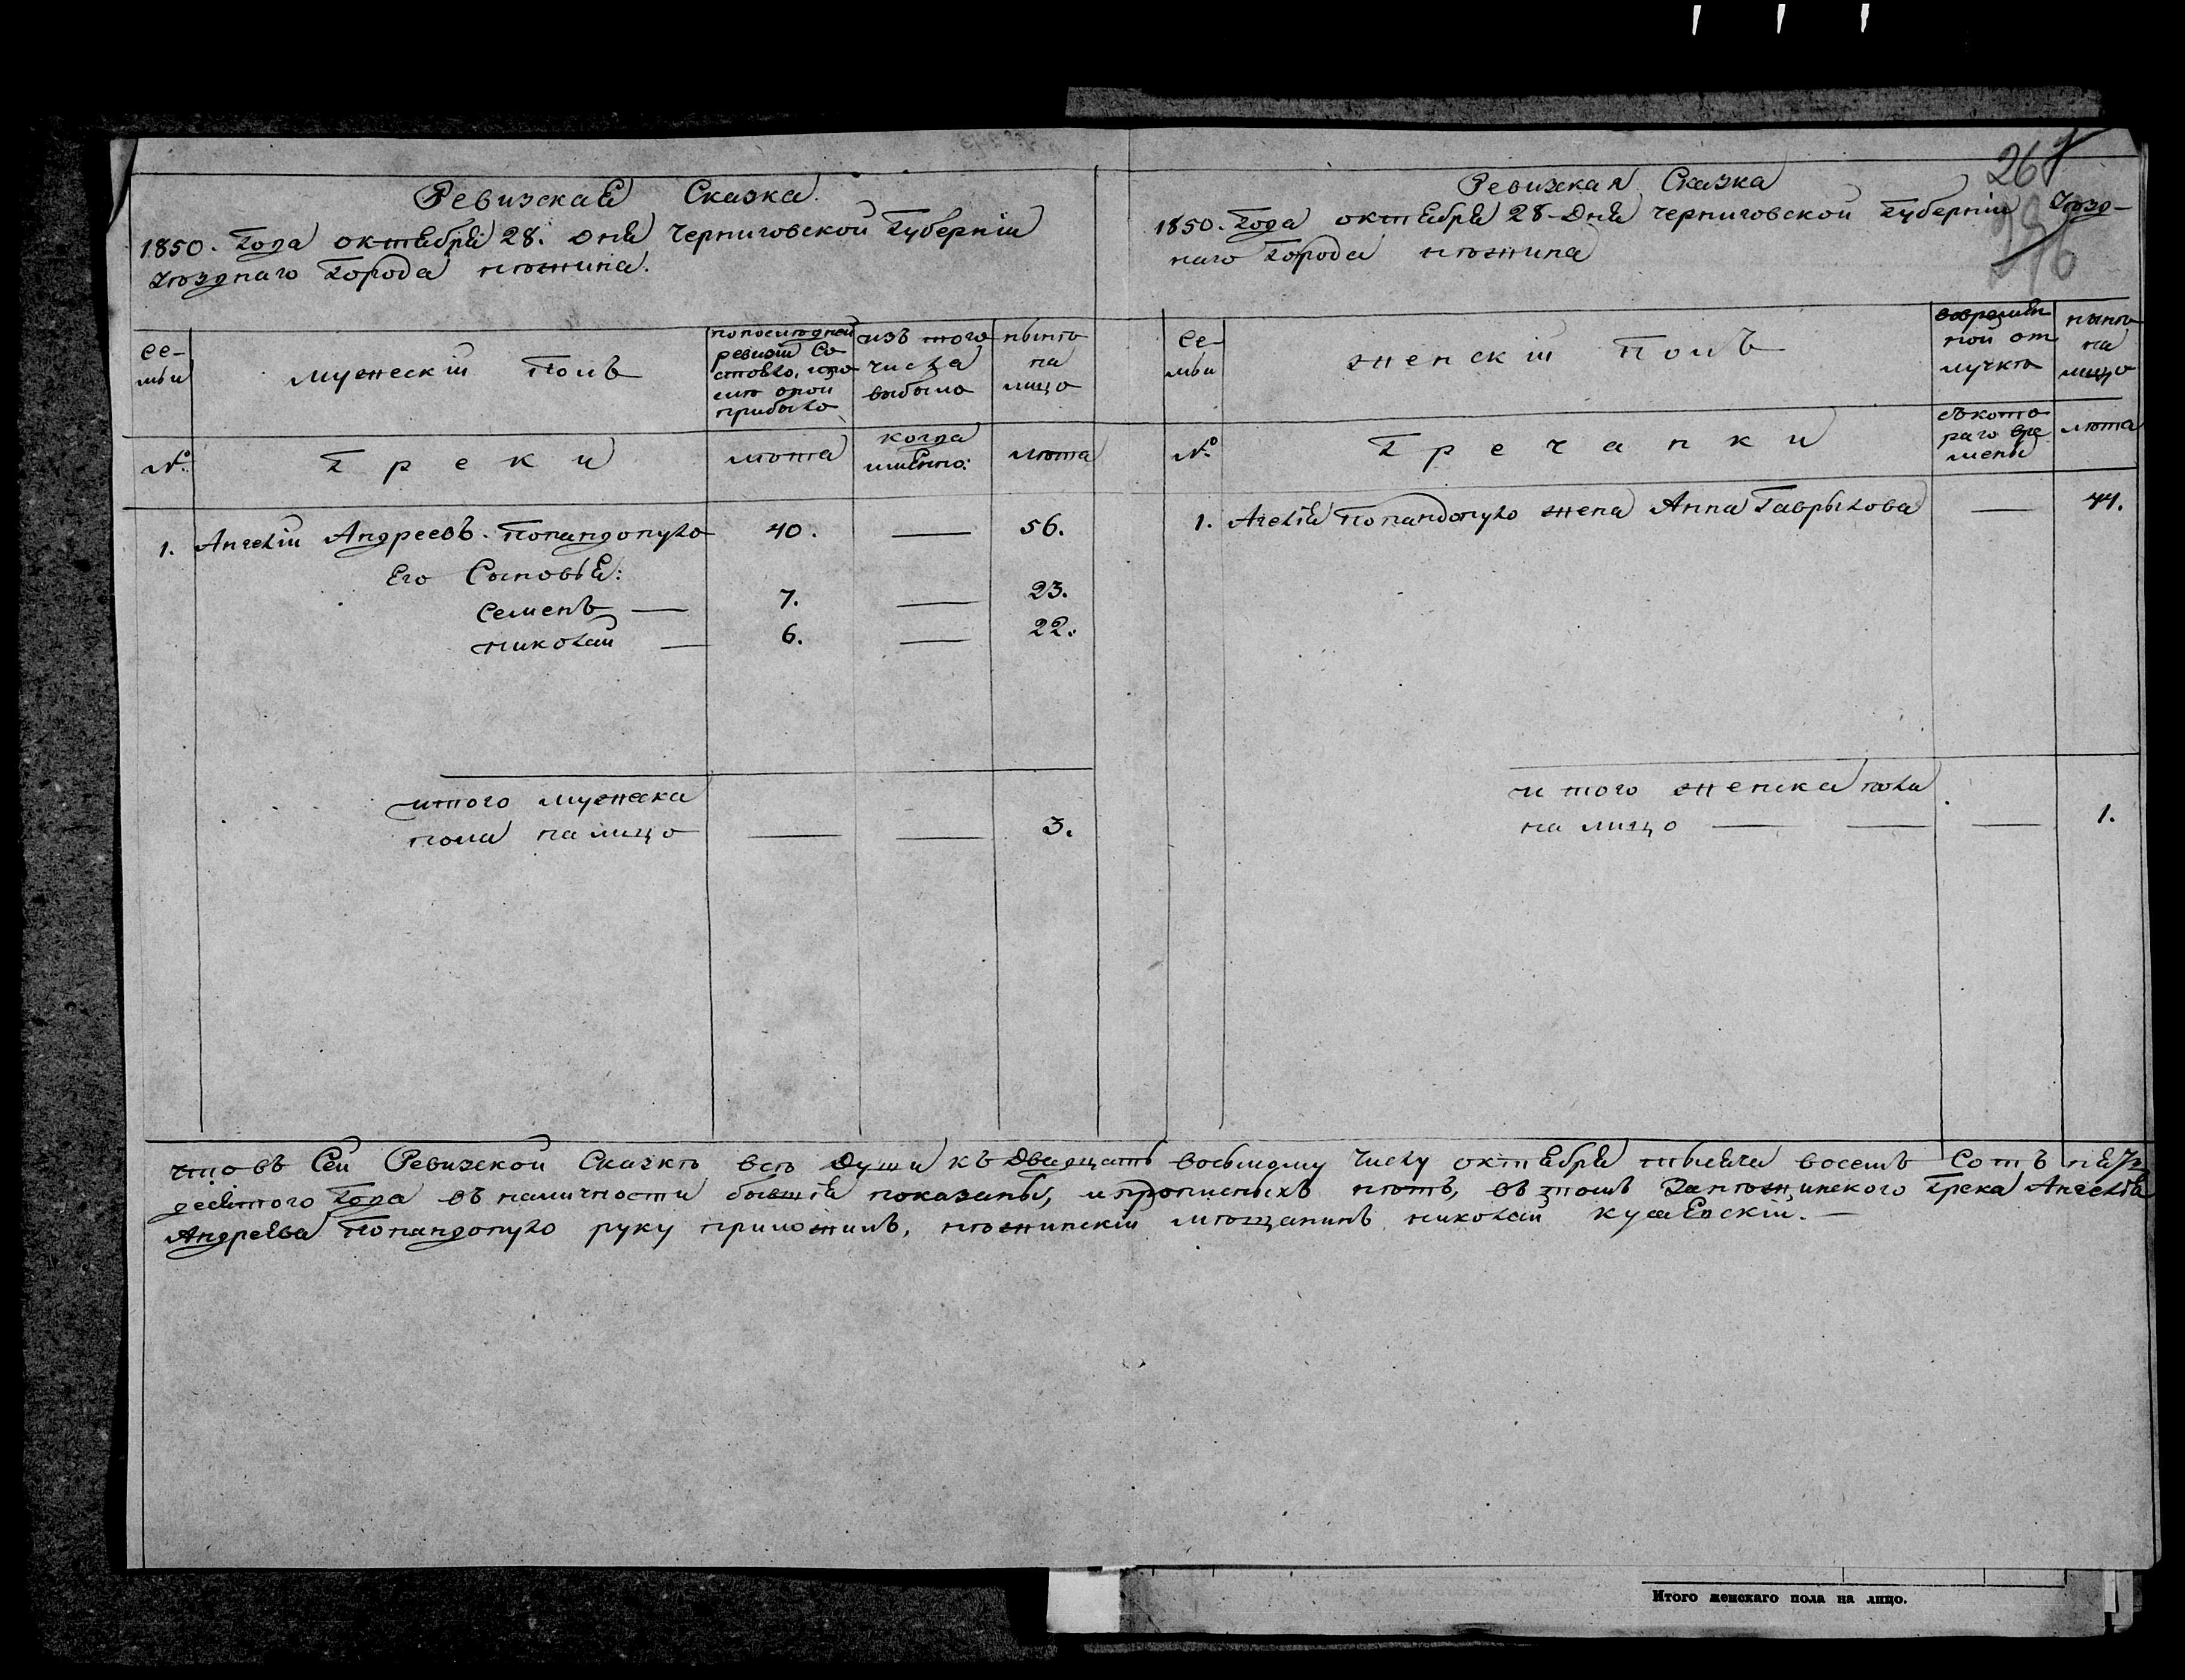 268
276
Ревизская Сказка.
1850. Года октября 28. дня Черниговской Губерніи
уѣзднаго Города нѣжина.
се-
мьи
мужескій Полъ
по последней
ревизіи Со
стояло, и по
слѣ оной
прибыло
изъ того
числа
выбыло
нынѣ
на
лицо
№
Греки
лѣта
когда
имянно:
лѣта
1. Ангелій Андреевъ Попандопуло 40. — 56.
Его Сыновья:
Семенъ — 7. — 23.
николай — 6. — 22.
итого мужеска
пола на лицо — — 3.
Ревизская Сказка
1850. Года октября 28 Дня Черниговской Губерніи уѣзд-
наго Города нѣжина
се-
мьи
женскій Полъ
во времян
ной от
лучкѣ
нынѣ
на
лицо
№
Гречанки
съ кото
раго вре
мени
лѣта
1. Ангелія Попандопуло жена Анна Гаврылова — 44.
итого женска пола
на лицо — — — 1.
что въ Сей Ревизской Сказкѣ всѣ Души къ Двадцать восьмому Числу октября тысяча восемь Сотъ пядь
десятого Года въ наличности бывшія показаны, и прописныхъ нѣтъ, въ томъ За нѣжинского Грека Ангелія
Андреева Попандопуло руку приложилъ, нѣжинскій мѣщанинъ николай
Итого женскаго пола на лицо.